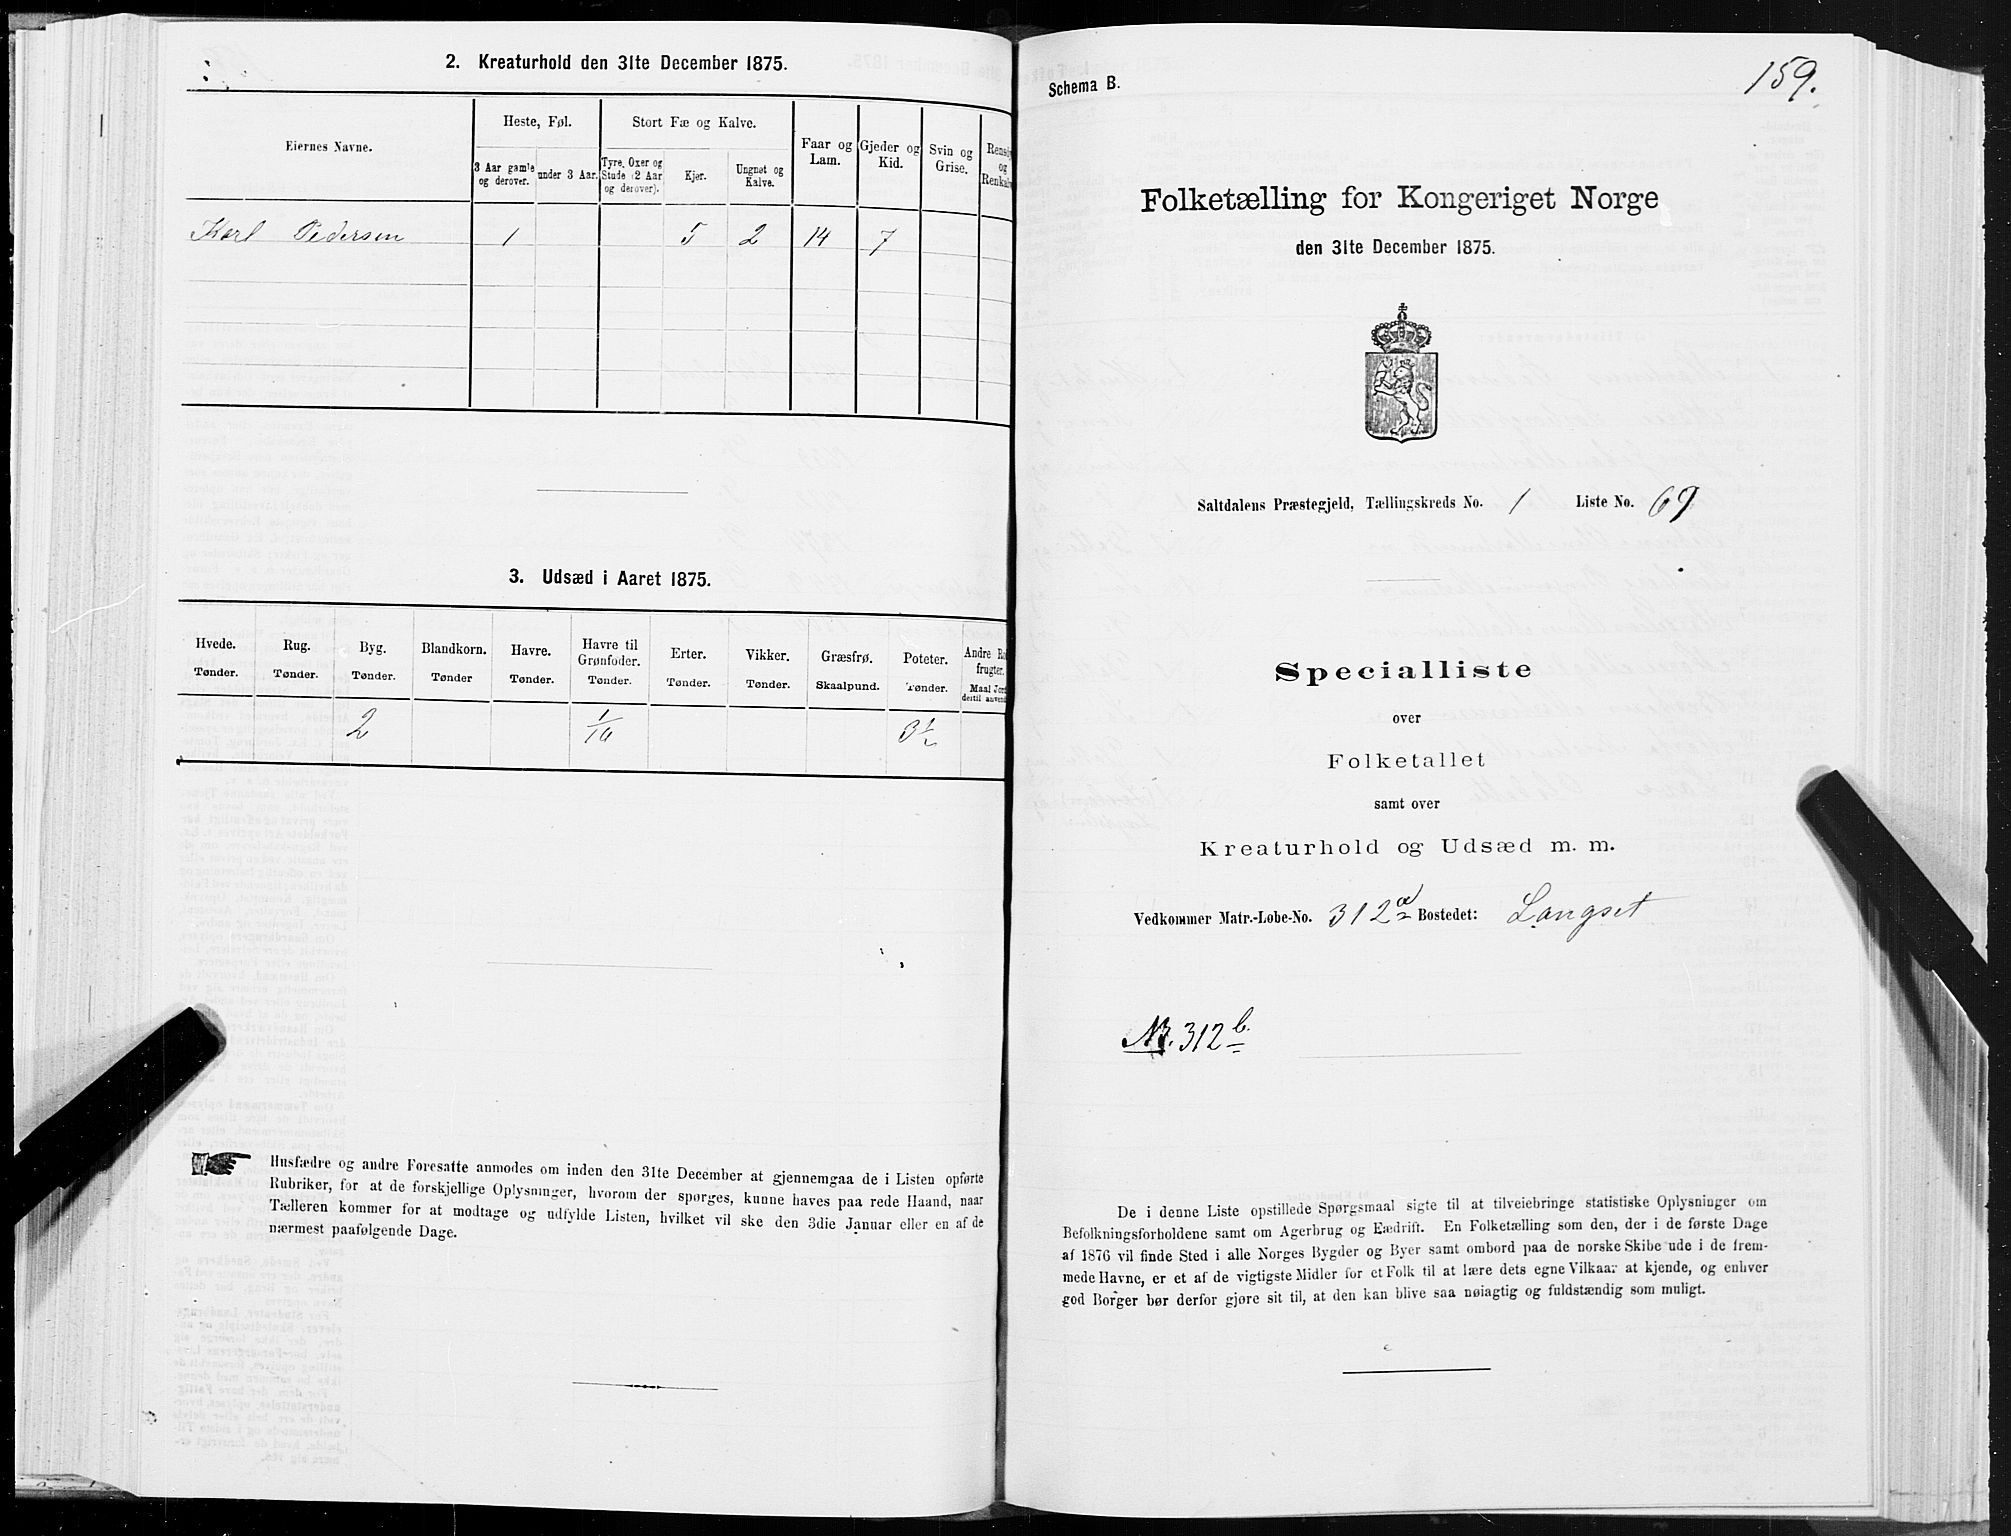 2. Kreaturhold den 31te December 1875.
Eiernes Navne.
Heste, Føl.
Stort Fæ og Kalve.
Faar og Lam.
Gjeder og Kid.
Svin og Grise.
3 Aar gamle og derover.
under 3 Aar.
Tyre, Oxer og Stude (2 Aar og derover).
Kjør.
Ungnøt og Kalve.
Karl Pedersen 1 5 2 14 7
3. Udsæd i Aaret 1875.
Hvede. Rug. Byg. Blandkorn. Havre. Havre til Grønfoder. Erter. Vikker. Græsfrø. Poteter.
Tønder. Tønder. Tønder. Tønder Tønder. Tønder. Tønder. Tønder. Skaalpund. Tønder.
2 3 1/2
Husfædre og andre Foresatte anmodes om inden den 31te December at gjennemgaa de i Listen opførte
Rubriker, for at de forskjellige Oplysninger, hvorom der spørges, kunne haves paa rede Haand, naar
Tælleren kommer for at modtage og udfylde Listen, hvilket vil ske den 3die Januar eller en af de
nærmest paafølgende Dage.
Schema B.
159.
Folketælling for Kongeriget Norge
den 31te December 1875.
Saltdalens Præstegjeld, Tællingskreds No. 1 Liste No. 69
Specialliste
over
Folketallet
samt over
Kreaturhold og Udsæd m. m.
Vedkommer Matr.-Løbe-No. 312a Bostedet: Langset
Nr. 312b.
De i denne Liste opstillede Spørgsmaal sigte til at tilveiebringe statistiske Oplysninger om
Befolkningsforholdene samt om Agerbrug og Fædrift. En Folketælling som den, der i de første Dage
af 1876 vil finde Sted i alle Norges Bygder og Byer samt ombord paa de norske Skibe ude i de frem-
mede Havne, er et af de vigtigste Midler for et Folk til at lære dets egne Vilkaar at kjende, og enhver
god Borger bør derfor gjøre sit til, at den kan blive saa nøiagtig og fuldstændig som muligt.